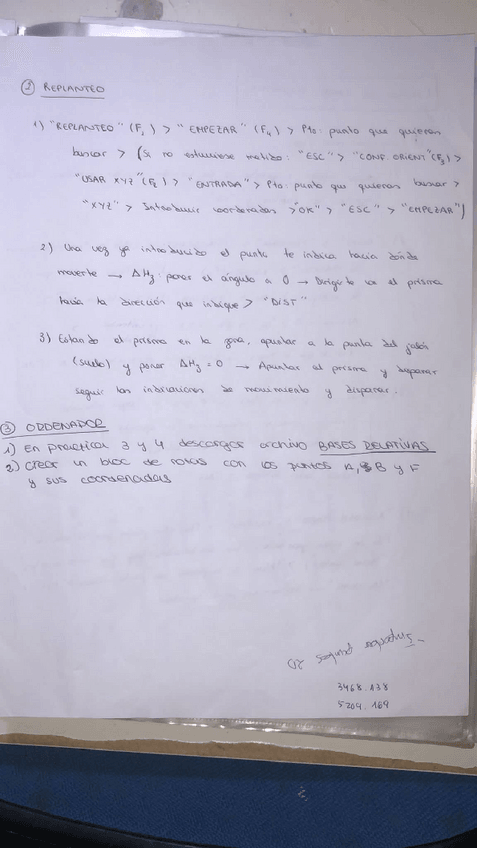 ② REPLANTEO
1) "REPLANTEO" (F₂) > "EMPEZAR" (F₄) > Pto: punto que quieras
buscar > (Si no estuviese metido: "ESC" > "CONF. ORIENT" (F₃) >
"USAR XYZ" (F₂) > "ENTRADA" > Pto: punto que quieras buscar >
"XYZ" > Introducir coordenadas > "OK" > "ESC" > "EMPEZAR")
2) Una vez ya introducido el punto te indica hacia dónde
moverte → ΔHz: poner el ángulo a 0 → Dirigirte con el prisma
hacia la dirección que indique > "DIST"
3) Estando el prisma en la zona, apuntar a la punta del jalón
(suelo) y poner ΔHz = 0 → Apuntar al prisma y disparar
seguir las indicaciones de movimiento y disparar.
③ ORDENADOR
1) En practicas 3 y 4 descargar archivo BASES RELATIVAS
2) Crear un bloc de notas con los puntos A, B y F
y sus coordenadas
3468.138
5204.169